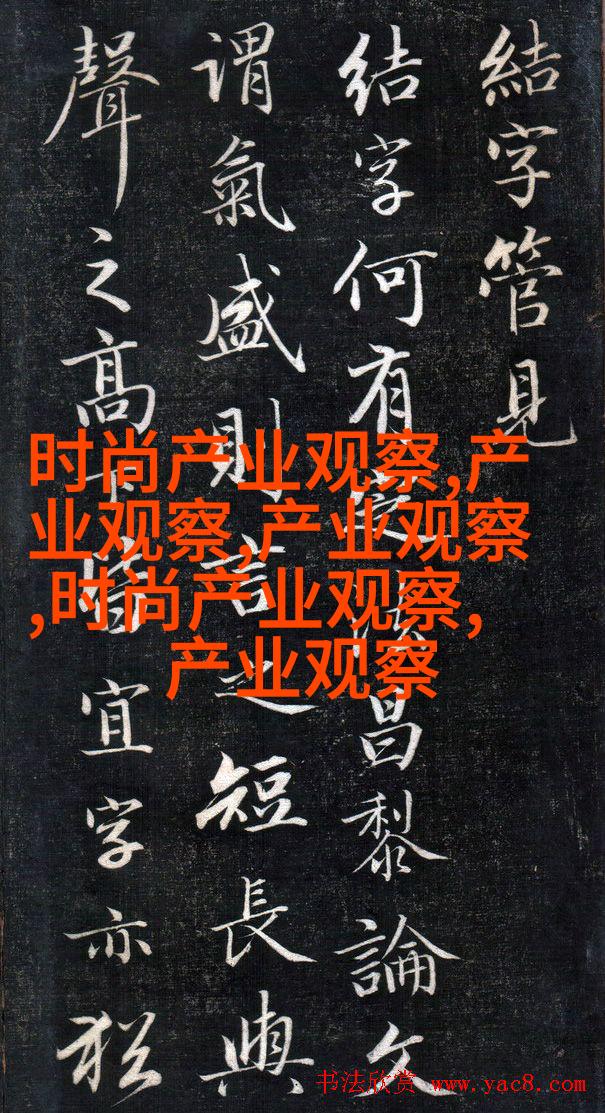 結字管見
结字何有定法昌黎論文
谓氣盛則言之短長與
聲之高下皆宜字亦猶
时尚产业观察,产
业观察,产业观察
,时尚产业观察,
产业观察
书法欣赏 www.yac8.com